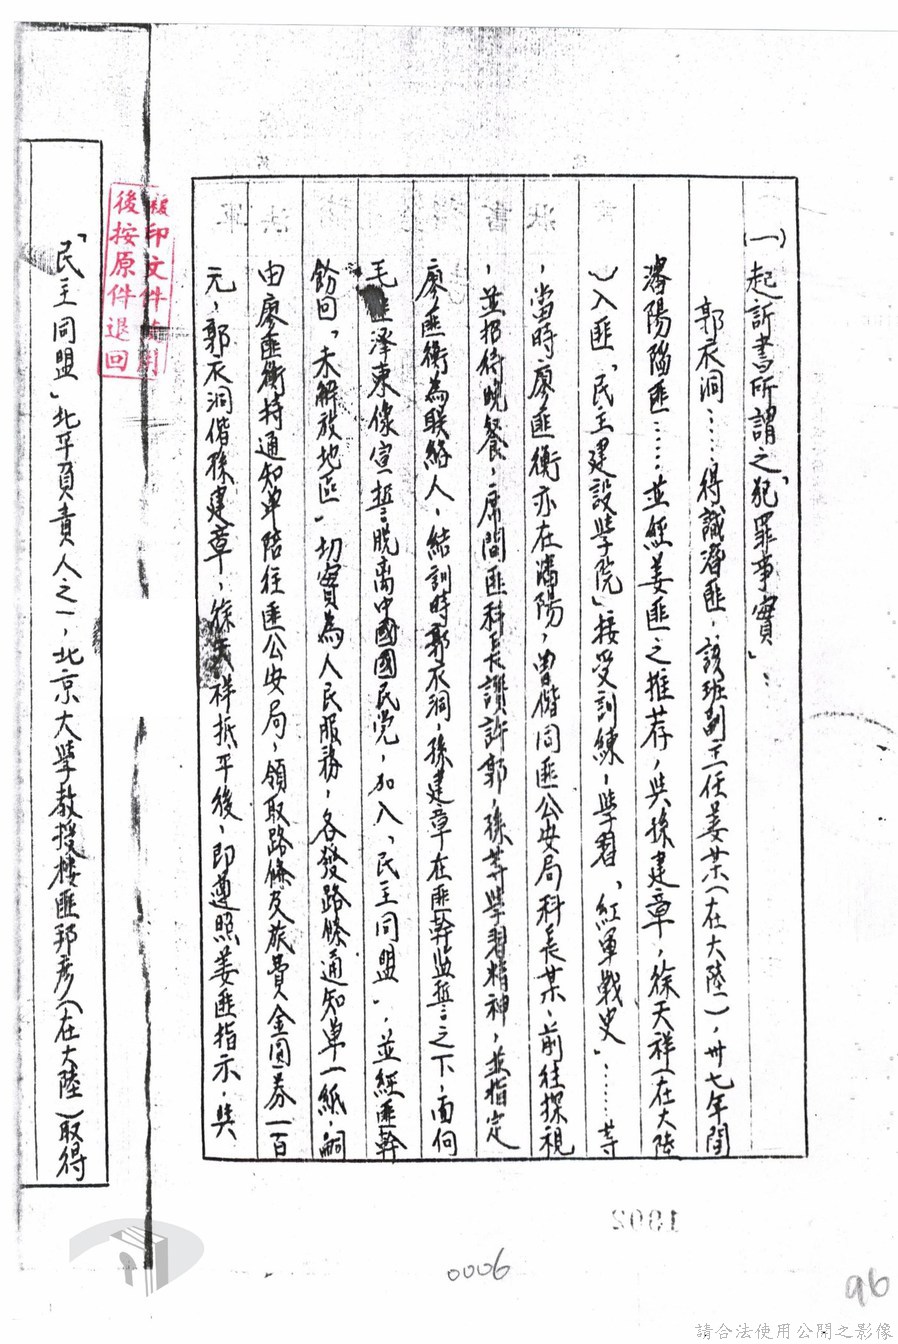 (一)起訴書所謂之「犯罪事實」:
郭衣洞……得識潘匪,該班副主任姜某(在大陸),卅七年間
瀋陽陷匪……並經姜匪之推荐,與孫建章,徐天祥(在大陸
)入匪「民主建設學院」接受訓練,學習「紅軍戰史」……等
,當時廖匪衡亦在瀋陽,曾偕同匪公安局科長某,前往探視
,並招待晚餐,席間匪科長讚許郭,孫等學習精神,並指定
廖匪衡為聯絡人,結訓時郭衣洞,孫建章在匪幹監誓之下,面向
毛匪澤東像宣誓脫离中國國民党,加入「民主同盟」,並經匪幹
飭回「未解放地區」切實為人民服務,各發路條通知單一紙,嗣
由廖匪衡持通知单陪往匪公安局,領取路條及旅費金圓券一百
元,郭衣洞偕孫建章,徐天祥抵平後,即遵照姜匪指示,與
「民主同盟」北平負責人之一,北京大學教授樓匪邦彥(在大陸)取得
印文件
後按原件退回
1302
0006
96
請合法使用公開之影像